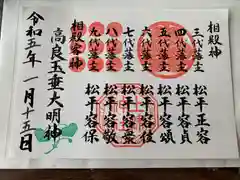 相殿神
三代藩主 松平正容
四代藩主 松平容貞
五代藩主 松平容頌
六代藩主
七代藩主 松平容衆
八代藩主 松平容敬
九代藩主 松平容保
相殿客神
高良玉垂大明神
令和五年一月十五日